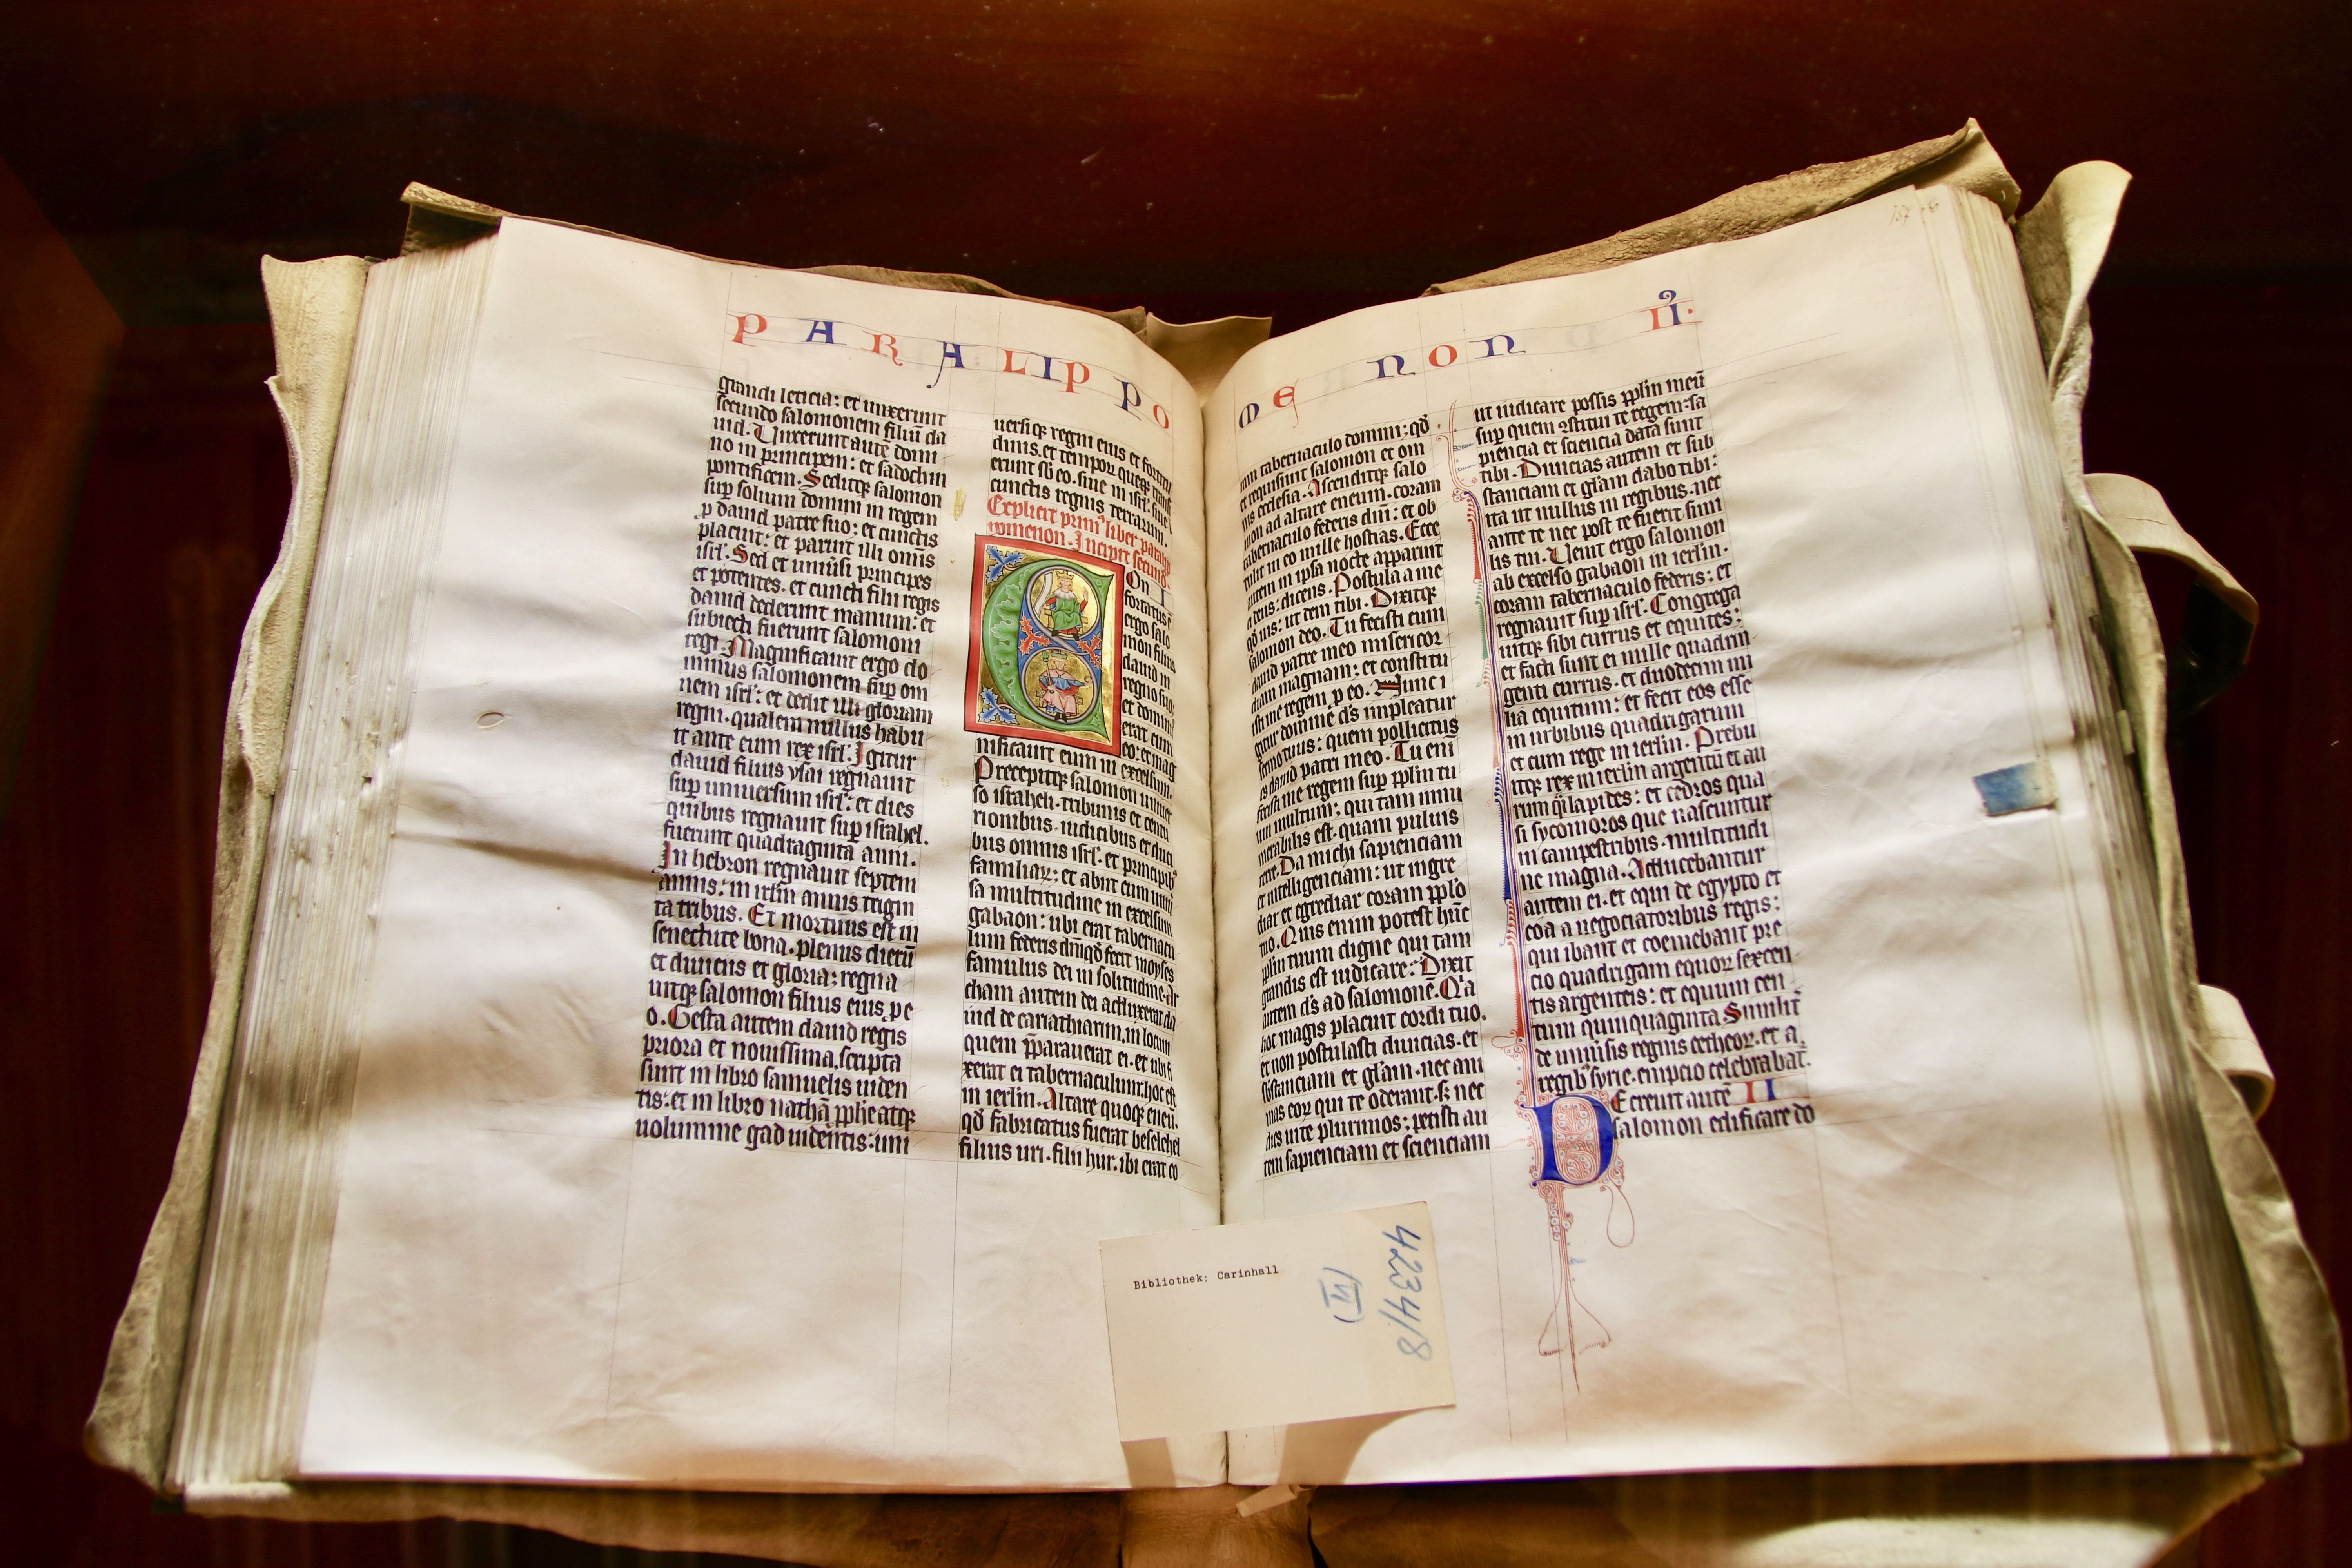 PARALIPPO
grandi leticia: et unxerunt
secundo salomonem filiū da
uid. Unxerunt autē domi
no in principem: et sadoch in
pontificem. Seditqꝫ salomon
suꝑ solium domini in regem
ꝓ dauid patre suo: et cunctis
placuit: et paruit illi omīs
isrl'. Sed et uniūsi principes
et potentes. et cuncti filii regis
dauid dederunt manum: et
subiecti fuerunt salomoni
regi. Magnificauit ergo do
minus salomonem suꝑ om
nem isrl': et dedit illi gloriam
regni. qualem nullus habu
it ante eum rex isrl'. Igitur
dauid filius ysai regnauit
suꝑ uniuersum isrl': et dies
quibus regnauit suꝑ israhel.
fuerunt quadraginta anni.
In hebron regnauit septem
annis: in irlm annis trigin
ta tribus. Et mortuus est in
senectute bona. plenus dierū
et diuiciis et gloria: regna
uitqꝫ salomon filius eius ꝓ e
o. Gesta autem dauid regis
priora et nouissima. scripta
sunt in libro samuelis uiden
tis: et in libro nathā ꝓphe atqꝫ
uolumine gad uidentis: uni
uersiqꝫ regni eius et fortitu
dinis. et tempoꝝ que
erunt sb eo. siue in isrl'. siue ī
cunctis regnis terrarum.
Explicit prim' liber parali
pomenon. Incipit secund'.
On I
fortatus ē
ergo salo
mon filius
dauid in
regno suo:
et domin'
erat cum
eo: et mag
nificauit eum in excelsum.
Precepitqꝫ salomon uniuer
so israheli. tribunis et centu
rionibus. iudicibus et duci
bus omnis isrl'. et principib'
familiaꝝ: et abiit cum uniu
sa multitudine in excelsum
gabaon: ubi erat tabernacu
lum federis dni qd fecit moyses
famulus dei in solitudine. Ar
cham autem dei adduxerat da
uid de cariathiarim in locum
quem p̄parauerat ei. et ubi fi
xerat ei tabernaculum: hoc est
in ierlm. Altare quoqꝫ eneū.
qd fabricatus fuerat beselehel
filius uri. filii hur. ibi erat co
MENON II.
ram tabernaculo domini: qd
et requisiuit salomon et om
nis ecclesia. Ascenditqꝫ salo
mon ad altare eneum. coram
tabernaculo federis dni: et ob
tulit in eo mille hostias. Ecce
autem in ipsa nocte apparuit
ei deus: dicens. Postula a me
qd uis: ut dem tibi. Dixitqꝫ
salomon deo. Tu fecisti cum
dauid patre meo misericor
diam magnam: et constitu
isti me regem ꝑ eo. Nunc i
gitur domine ds impleatur
sermo tuus: quem pollicitus
es dauid patri meo. Tu eni
fecisti me regem suꝑ pplm tu
um multum: qui tam innu
merabilis est. quam puluis
terre. Da michi sapienciam
et intelligenciam: ut ingre
diar et egrediar coram pplo
tuo. Quis enim potest hūc
pplm tuum digne qui tam
grandis est iudicare: Dixit
autem ds ad salomonē. Q'a
hoc magis placuit cordi tuo.
et non postulasti diuicias. et
sbstanciam et gl'am. nec ani
mas eoꝝ qui te oderant. sꝫ nec
dies uite plurimos: petisti au
tem sapienciam et scienciam
ut iudicare possis pplm meū
suꝑ quem ꝯstitui te regem: sa
piencia et sciencia data sunt
tibi. Diuicias autem et sub
stanciam et gl'am dabo tibi:
ita ut nullus in regibus. nec
ante te nec post te fuerit simi
lis tui. Uenit ergo salomon
ab excelso gabaon in ierlm.
coram tabernaculo federis: et
regnauit suꝑ isrl'. Congrega
uitqꝫ sibi currus et equites:
et facti sunt ei mille quadrin
genti currus. et duodecim mi
lia equitum: et fecit eos esse
in urbibus quadrigarum
et cum rege in ierlm. Prebu
itqꝫ rex in ierlm argentū et au
rum q̄si lapides: et cedros qua
si sycomoros que nascuntur
in campestribus. multitudi
ne magna. Adducebantur
autem ei. et equi de egypto et
coa a negociatoribus regis:
qui ibant et coemebant pre
cio quadrigam equoꝝ sexcen
tis argenteis: et equum cen
tum quinquaginta. Similit̄
de uniūsis regnis cetheoꝝ. et a
regib' syrie. empcio celebrabat̄.
Ecreuit autē II
D salomon edificare do
Bibliothek: Carinhall
4234/8
(VI)